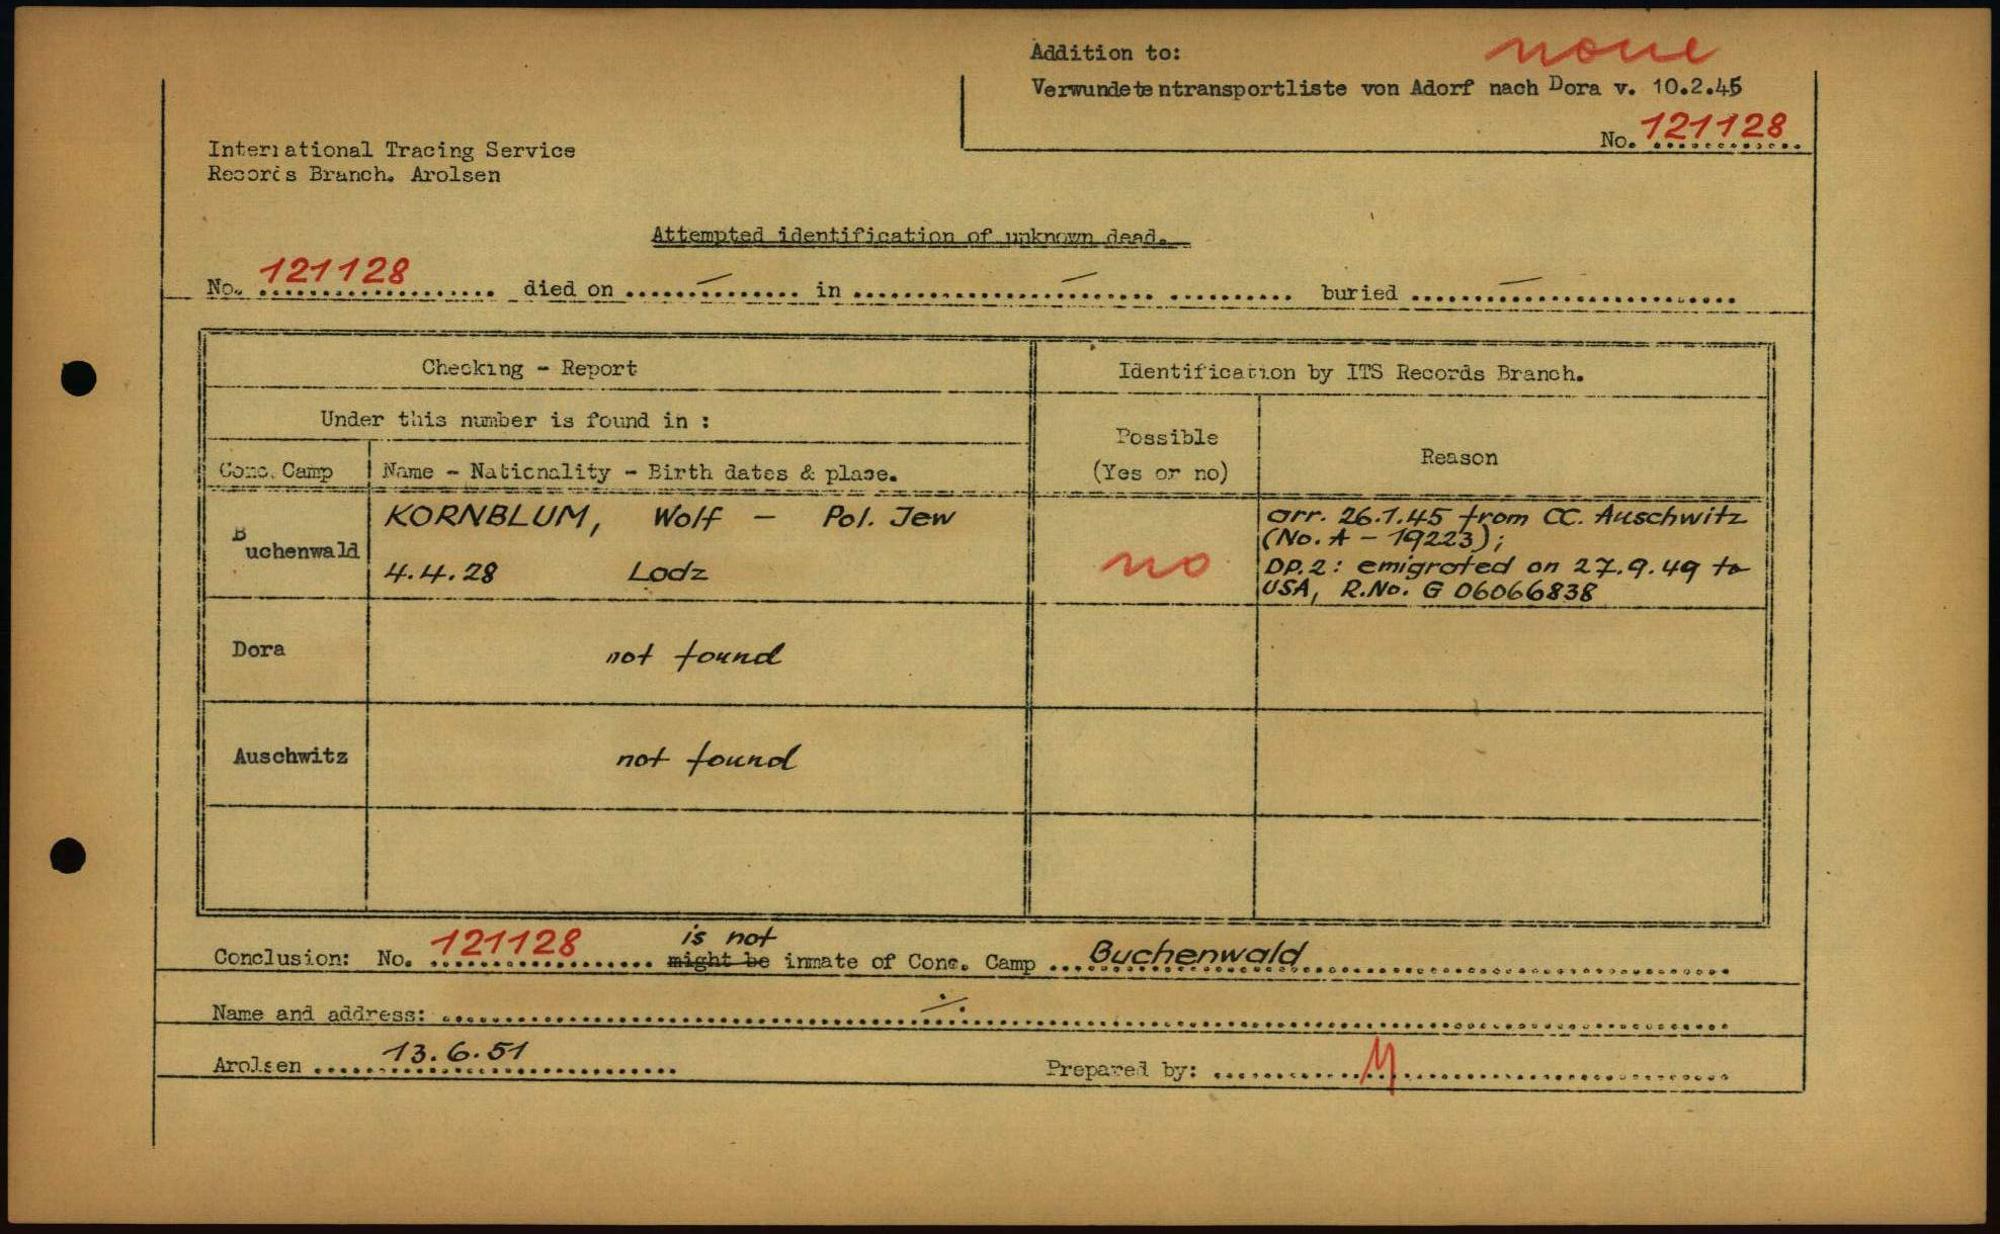 Addition to: none
Verwundetentransportliste von Adorf nach Dora v. 10.2.45
No. 121128
International Tracing Service
Records Branch. Arolsen
Attempted identification of unknown dead.
No. 121128 died on — in — buried —
Checking - Report
Identification by ITS Records Branch.
Under this number is found in :
Possible
(Yes or no)
Reason
Conc. Camp
Name - Nationality - Birth dates & place.
Buchenwald
KORNBLUM, Wolf - Pol. Jew
4.4.28 Lodz
no
arr. 26.1.45 from CC. Auschwitz
(No. A - 19223);
DP.2: emigrated on 27.9.49 to
USA, R.No. G 06066838
Dora
not found
Auschwitz
not found
is not
Conclusion: No. 121128 might be inmate of Conc. Camp Buchenwald
Name and address: ./.
Arolsen 13.6.51
Prepared by: